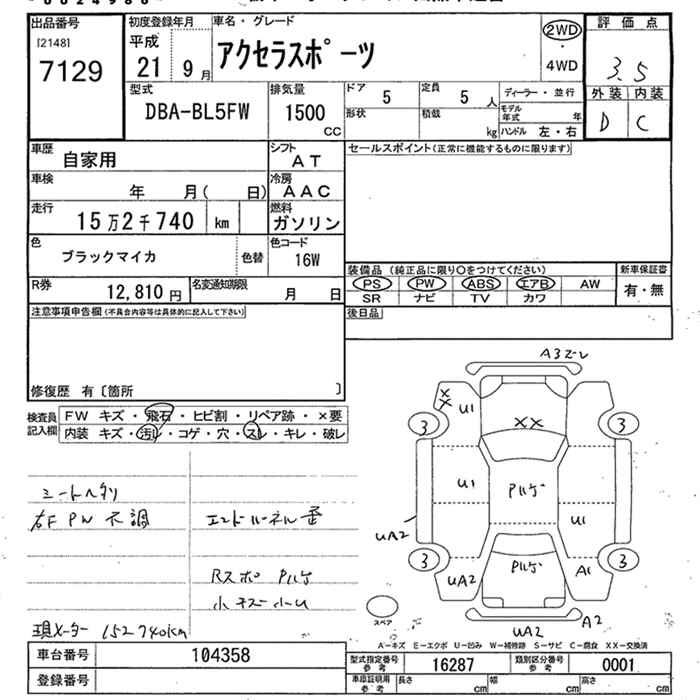 出品番号
[2148]
7129
初度登録年月
平成
21 9月
車名・グレード
アクセラスポーツ
2WD
・
4WD
評価点
3.5
外装 内装
D C
型式
DBA-BL5FW
排気量
1500
CC
ドア
5
定員
5 人
形状
積載
kg
ディーラー・並行
モデル年式 年
ハンドル 左・右
車歴
自家用
シフト
AT
車検
年 月( 日)
冷房
AAC
走行
15万2千740 km
燃料
ガソリン
色
ブラックマイカ
色替
色コード
16W
R券
12,810円
名変通知期限
月 日
セールスポイント(正常に機能するものに限ります)
装備品 (純正品に限り○をつけてください)
新車保証書
PS PW ABS エアB AW
有・無
SR ナビ TV カワ
後日品
注意事項申告欄(不具合内容等は具体的に記入して下さい)
修復歴 有〔箇所 〕
検査員記入欄
FW キズ・飛石・ヒビ割・リペア跡・×要
内装 キズ・汚レ・コゲ・穴・スレ・キレ・破レ
シートヘタリ
右F PW 不調
現メーター 152740km
R スポ
小キズ 小U
A3
XX U1
XX
3 3
U1
U1
UA2
3 3
UA2
A1
スペア
UA2
A2
A-キズ E-エクボ U-凹み W-補修跡 S-サビ C-腐食 XX-交換済
車台番号
104358
登録番号
型式指定番号
参考
16287
類別区分番号
参考
0001
車庫証明用
参考
長さ cm 幅 cm 高さ cm